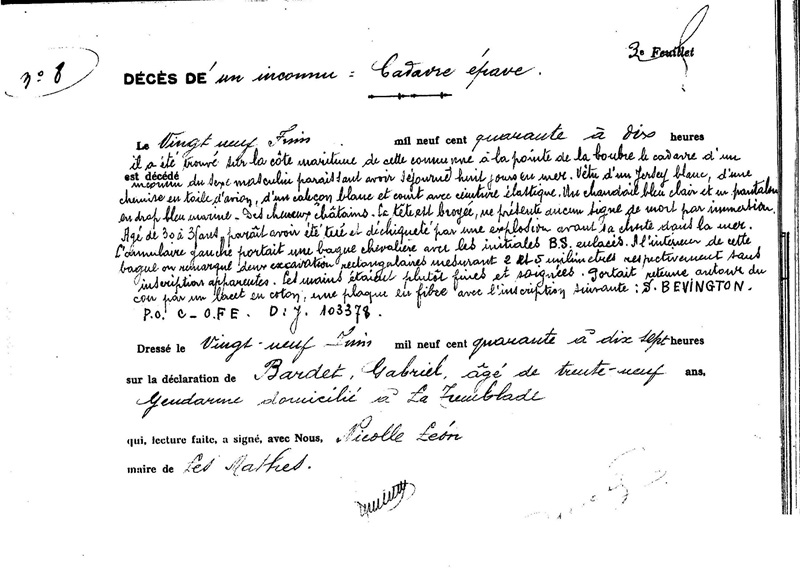 3e Feuillet
No 8
DÉCÈS DE un inconnu = Cadavre épave.
Le Vingt neuf Juin mil neuf cent quarante à dix heures
il a été trouvé sur la côte maritime de cette commune à la pointe de la Coubre le cadavre d'un
est décédé inconnu du sexe masculin paraissant avoir séjourné huit jours en mer. Vêtu d'un Jersey blanc, d'une
chemise en toile d'avion, d'un caleçon blanc et court avec ceinture élastique. Un chandail bleu clair et un pantalon
en drap bleu marine. Des cheveux châtains. La tête est broyée, ne présente aucun signe de mort par immersion.
Agé de 30 à 35 ans, paraît avoir été tué et déchiqueté par une explosion avant sa chute dans la mer.
L'annulaire gauche portait une bague chevalière avec les initiales B.S. enlacés. A l'intérieur de cette
bague on remarque deux excavation rectangulaires mesurant 2 et 5 milimètres respectivement sans
inscriptions apparentes. Les mains étaient plutôt fines et soignées. Portait retenue autour du
cou par un lacet en coton, une plaque en fibre avec l'inscription suivante : S. BEVINGTON.
P.O. C_OFE. D:J. 103378.
Dressé le Vingt-neuf Juin mil neuf cent quarante à dix sept heures
sur la déclaration de Bardet, Gabriel, âgé de trente-neuf ans,
Gendarme domicilié à La Tremblade
qui, lecture faite, a signé, avec Nous, Nicolle Léon
maire de Les Mathes.